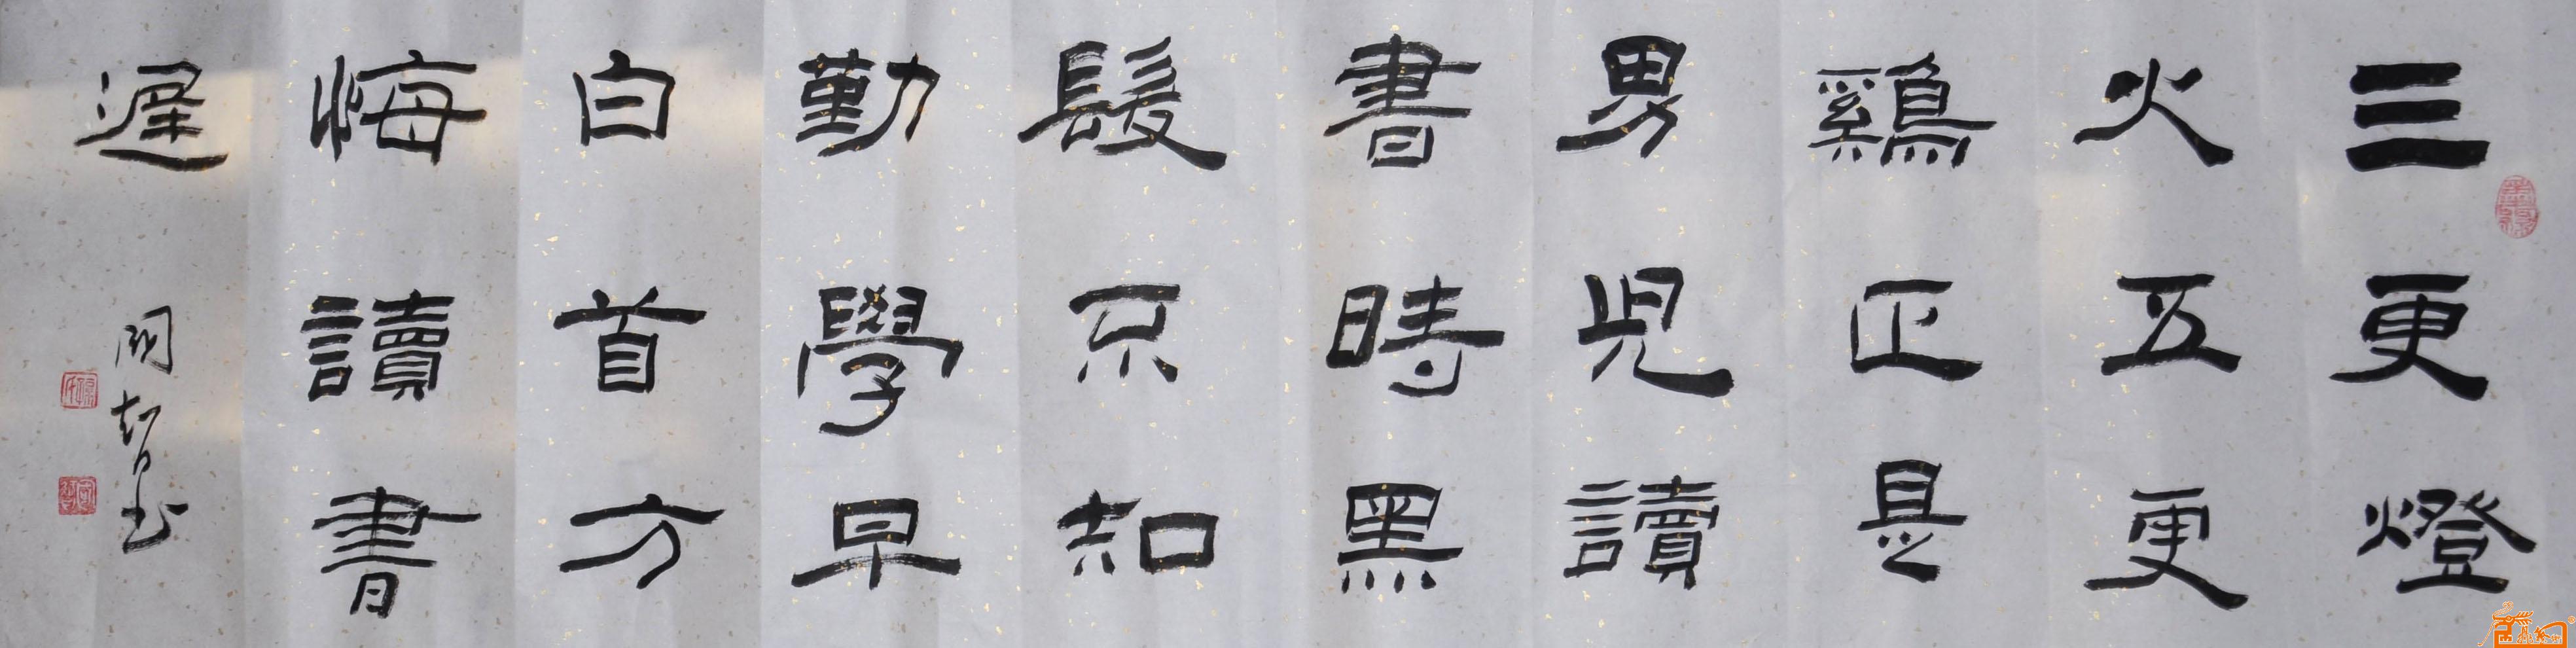 三更燈
火五更
鷄正是
男兒讀
書時黑
髮不知
勤學早
白首方
悔讀書
遲
智书